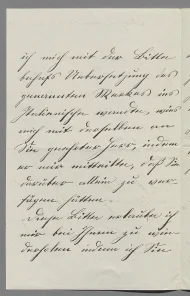 ich mich mit der Bitte
behufs Uebersetzung des
genannten Werkes ins
Italienische wandte, wies
mich mit derselben an
Sie geehrter Herr, indem
er mir mittheilte, daß Sie
darüber allein zu ver-
fügen hätten.
Diese Bitte erlaube ich
mir bei Ihnen zu wie-
derholen indem ich Sie